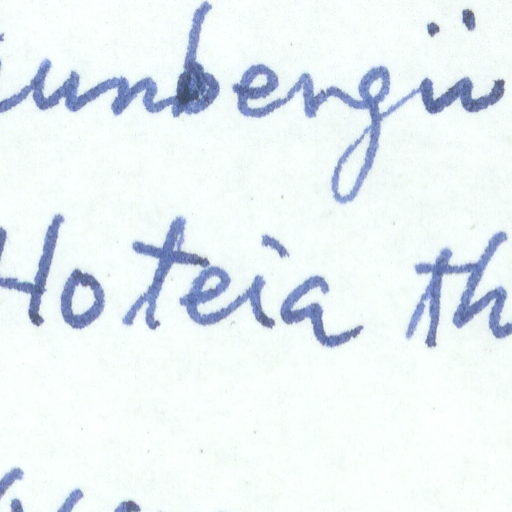 unbergii
Hoteia th